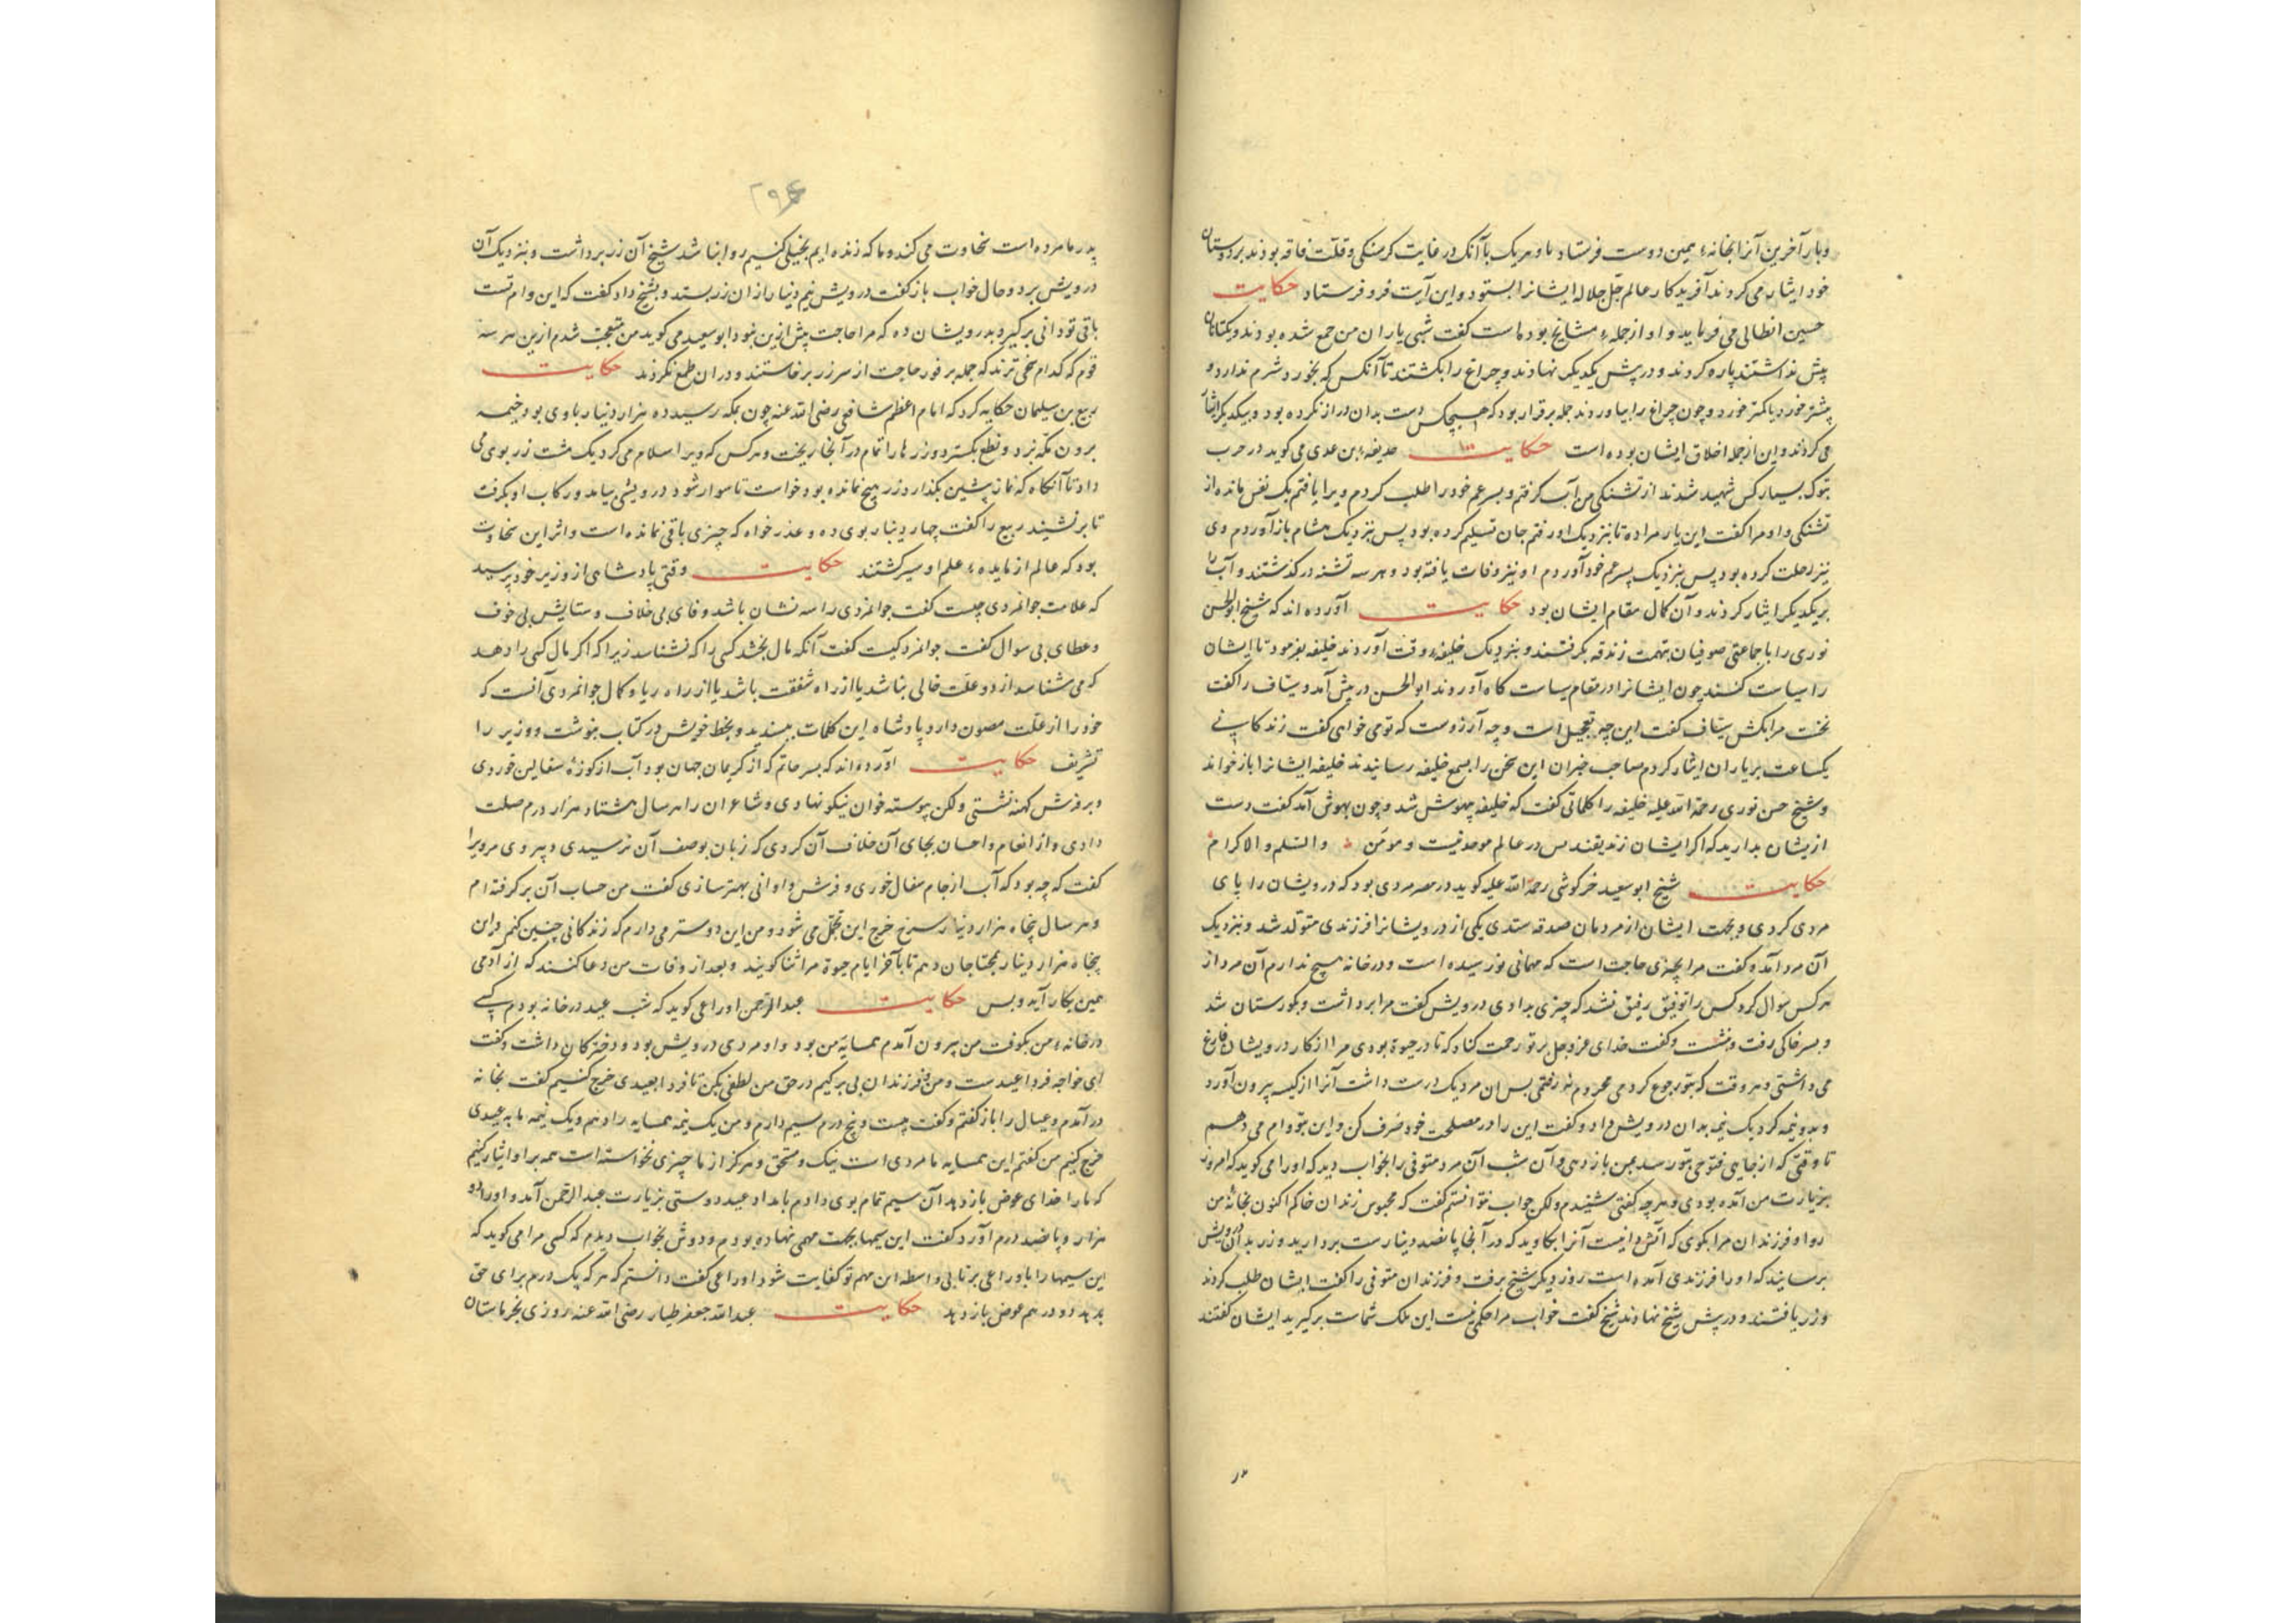 و بار آخرین آنرا بخانهٔ همین دوست فرستاد با وهریک با آنک در غایت کرسنکی و قلت فاقه بودند بر دوستان
خود ایثار می کردند آفریدکار عالم جل جلاله ایشانرا بستود و این آیت فرو فرستاد حکایت
حسین انطاکی می فرماید و او از جملهٔ مشایخ بوده است کفت شبی یاران من جمع شده بودند ویکتانان
پیش نداشتند پاره کردند و در پیش یکدیکر نهادند و چراغ را بکشتند تا آنکس که بخورد شرم ندارد و
بیشتر خورد یا کمتر خورد و چون چراغ را بیاوردند جمله برقرار بود که هیچکس دست بدان دراز نکرده بود و بیکدیکر ایثار
می کردند و این از جمله اخلاق ایشان بوده است حکایت حذیفه ابن عدی می کوید در حرب
تبوک بسیار کس شهید شدند از تشنکی من آب کرفتم و پسر عم خود را طلب کردم ویرا یافتم یک نفس مانده از
تشنکی و او مرا کفت این یار مرا ده تا بنزدیک او رفتم جان تسلیم کرده بود پس بنزدیک هشام باز آوردم وی
نیز رحلت کرده بود پس بنزدیک پسر عم خود آوردم او نیز وفات یافته بود و هر سه تشنه در کذشتند و آب را
بر یکدیکر ایثار کردند و آن کمال مقام ایشان بود حکایت آورده اند که شیخ ابوالحسن
نوری را با جماعتی صوفیان بتهمت زندقه بکرفتند و بنزدیک خلیفهٔ وقت آوردند خلیفه بفرمود تا ایشان
را سیاست کنند چون ایشانرا در مقام سیاست کاه آوردند ابوالحسن در پیش آمد و سیاف را کفت
نخست مرا بکش سیاف کفت این چه تعجیل است و چه آرزوست که تو می خواهی کفت زندکانی
یکساعت بر یاران ایثار کردم صاحب خبران این سخن را بسمع خلیفه رسانیدند خلیفه ایشانرا باز خواند
و شیخ حسن نوری رحمة الله علیه خلیفه را کلماتی کفت که خلیفه بیهوش شد و چون بهوش آمد کفت دست
ازیشان بدارید که اکر ایشان زندیقند پس در عالم موحد نیست و مؤمن والسلم والاکرام
حکایت شیخ ابو سعید خرکوشی رحمة الله علیه کوید در مصر مردی بود که درویشان را پای
مردی کردی و بجهت ایشان از مردمان صدقه ستدی یکی از درویشانرا فرزندی متولد شد و بنزدیک
آن مرد آمد و کفت مرا بچیزی حاجت است که مهمانی نو رسیده است و در خانه هیچ ندارم آن مرد از
هر کس سوال کرد کس را توفیق رفیق نشد که چیزی بدادی درویش کفت مرا برداشت و بکورستان شد
و بسر خاکی رفت و بنشست و کفت خدای عز و جل بر تو رحمت کناد که تا در حیوة بودی مرا از کار درویشان فارغ
می داشتی و هر وقت که بتو رجوع کردمی محروم نرفتمی پس آن مرد یک درست داشت آنرا از کیسه بیرون آورد
و بدو نیمه کرد یک نیمه بدان درویش داد و کفت این را در مصلحت خود صرف کن و این بتو وام می دهم
تا وقتی که از جایی فتوحی بتو رسد بمن باز دهی و آن شب آن مرد متوفی را بخواب دید که او را می کوید که امروز
بزیارت من آمده بودی و هرچه کفتی شنیدم ولکن جواب نتوانستم کفت که محبوس زندان خاکم اکنون بخانهٔ من
رو او فرزندان مرا بکوی که آتش دانیست آنرا بکاوید که در آنجا پانصد دینارست بردارید و زر بدان درویش
برسانید که او را فرزندی آمده است روز دیکر شیخ برفت و فرزندان متوفی را کفت ایشان طلب کردند
وزر یافتند و در پیش شیخ نهادند شیخ کفت خواب مرا حکمی نیست این ملک شماست برکیرید ایشان کفتند
پدر ما مرده است سخاوت می کند و ما که زنده ایم بخیلی کنیم روا نباشد شیخ آن زر برداشت و بنزدیک آن
درویش برد و حال خواب باز کفت درویش نیم دینار از ان زر بستد و بشیخ داد کفت که این وام تست
باقی تو دانی برکیر و بدرویشان ده که مرا حاجت بیش ازین نبود ابو سعید می کوید من متعجب شدم ازین هر سه
قوم که کدام سخی ترند که جمله بر فور حاجت از سر زر برخاستند و دران طمع نکردند حکایت
ربیع بن سلیمان حکایه کرد که امام اعظم شافعی رضی الله عنه چون بمکه رسید ده هزار دینار با وی بود خیمه
برون مکه بزد و نطع بکسترد و زرها را تمام در آنجا ریخت و هر کس که ویرا سلام می کرد یک مشت زر بوی می
داد تا آنکاه که نماز پیشین بکذارد زر هیچ نمانده بود خواست تا سوار شود درویشی بیامد و رکاب او بکرفت
تا برنشیند ربیع را کفت چهار دینار بوی ده و عذر خواه که چیزی باقی نمانده است و اثر این سخاوت
بود که عالم از مایدهٔ علم او سیر کشتند حکایت وقتی پادشاهی از وزیر خود پرسید
که علامت جوانمردی چیست کفت جوانمردی را سه نشان باشد وفای بی خلاف و ستایش بی خوف
و عطای بی سوال کفت جوانمرد کیست کفت آنکه مال بخشد کسی را که نشناسد زیرا که اکر مال کسی را دهد
که می شناسد از دو علت خالی نباشد یا از راه شفقت باشد یا از راه ریا و کمال جوانمردی آنست که
خود را از علت مصون دارد پادشاه این کلمات بپسندید و بخط خویش در کتاب بنوشت و وزیر را
تشریف حکایت آورده اند که پسر حاتم که از کریمان جهان بود آب از کوزهٔ سفالین خوردی
و بر فرش کهنه نشستی ولکن پیوسته خوان نیکو نهادی و شاعران را هر سال هشتاد هزار درم صلت
دادی و از انعام و احسان بجای آن خلاف آن کردی که زبان بوصف آن نرسیدی و پیر وی مرویرا
کفت که چه بود که آب از جام سفال خوری و فرش و اوانی بهتر سازی کفت من حساب آن برکرفته ام
و هر سال پنجاه هزار دینار سرخ خرج این تجمل می شود و من این دوستر می دارم که زندکانی چنین کنم و این
پنجاه هزار دینار بمحتاجان دهم تا بآخر ایام حیوة مرا ثنا کویند و بعد از وفات من دعا کنند که از آدمی
همین بکار آید و بس حکایت عبد الرحمن اوزاعی کوید که شب عید در خانه بودم کسی
در خانهٔ من بکوفت من بیرون آمدم همسایهٔ من بود و او مردی درویش بود و دخترکان داشت و کفت
ای خواجه فردا عیدست و من و فرزندان بی برکیم در حق من لطفی بکن تا فردا بعیدی خرج کنیم کفت بخانه
در آمدم و عیال را باز کفتم و کفت بیست و پنج درم سیم دارم و من یک نیمه همسایه را دهم و یک نیمه ما به عیدی
خرج کنیم من کفتم این همسایه ما مردی است نیک و مستحق و هرکز از ما چیزی نخواسته است همه برا و ایثار کنیم
که ما را خدای عوض باز دهد آن سیم تمام بوی دادم بامداد عید دوستی بزیارت عبد الرحمن آمد و او را دو
هزار و پانصد درم آورد کفت این سیمها بجهت مهمی نهاده بودم و دوش بخواب دیدم که کسی مرا می کوید که
این سیمها را باوزاعی بر تا بی واسطه این مهم تو کفایت شود اوزاعی کفت دانستم که هر که یک درم برای حق
بدهد دو درهم عوض باز دهد حکایت عبد الله جعفر طیار رضی الله عنه روزی بخرماستان